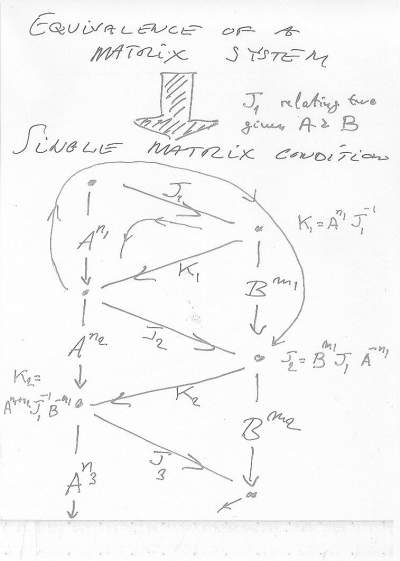 EQUIVALENCE OF A
MATRIX SYSTEM
J₁ relating two
given A & B
SINGLE MATRIX CONDITION
J₁
K₁ = Aⁿ¹ J₁⁻¹
Aⁿ¹
K₁
Bᵐ¹
Aⁿ²
J₂
J₂ = Bᵐ¹ J₁ A⁻ⁿ¹
K₂ =
Aⁿ¹⁺ⁿ² J₁⁻¹ B⁻ᵐ¹
K₂
Bᵐ²
J₃
Aⁿ³